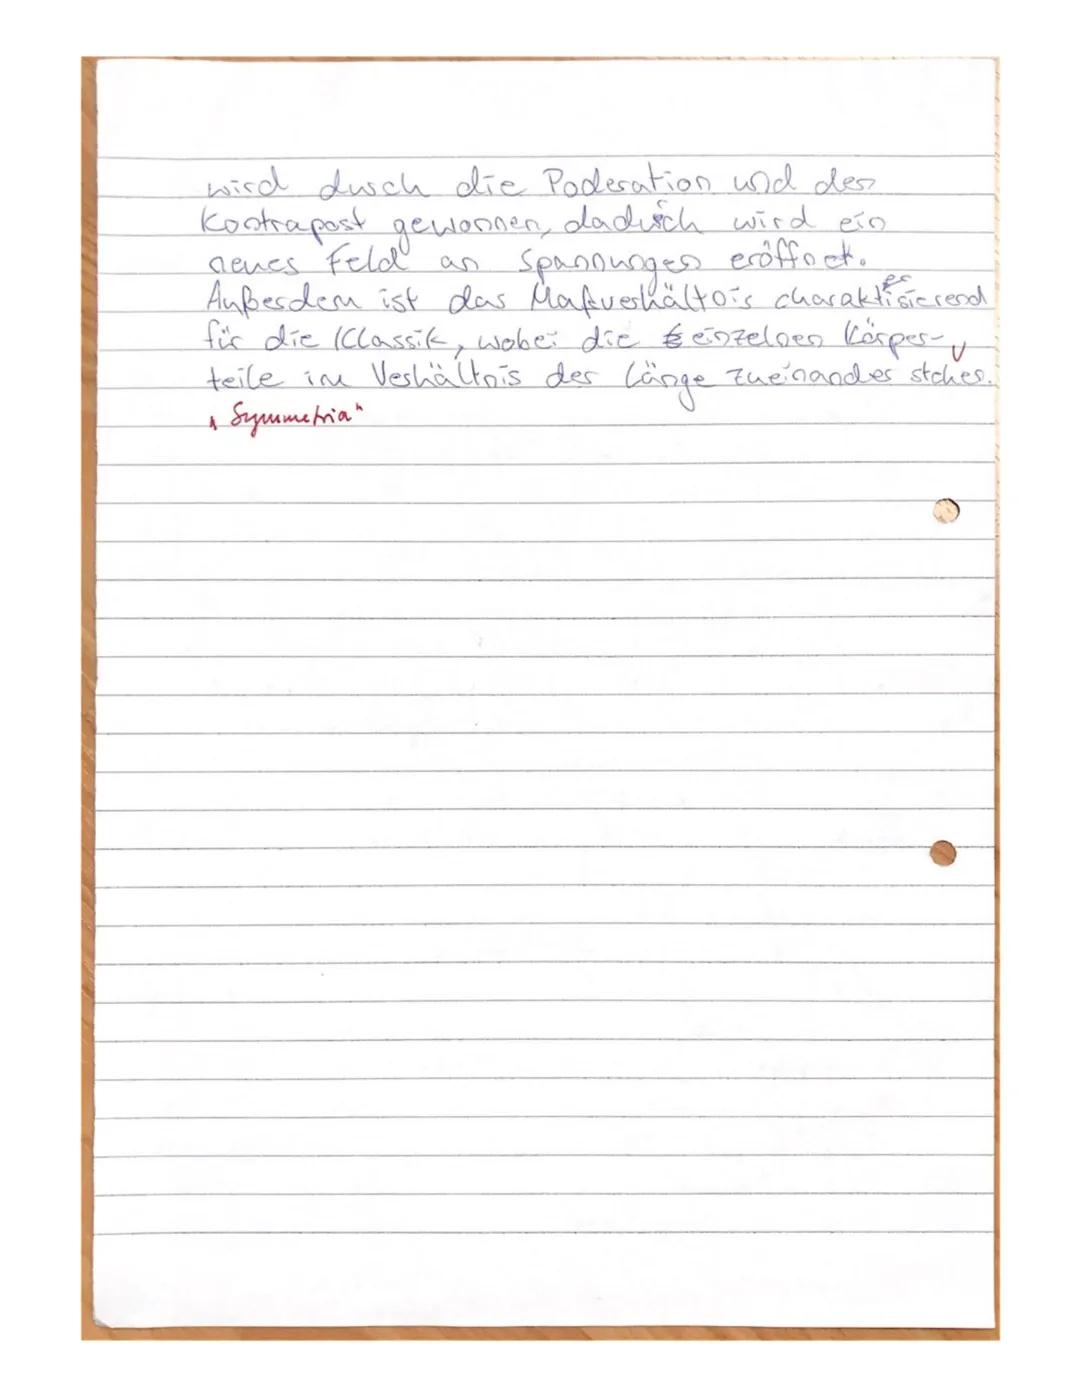 wird durch die Poderation und den
Kontrapost gewonnen, dadurch wird ein
neues Feld an Spannungen eröffnet.
Außerdem ist das Maßverhältnis charakterisierend
für die Klassik, wobei die einzelnen Körper-
teile im Verhältnis der Länge zueinander stehen.
"Symmetria"